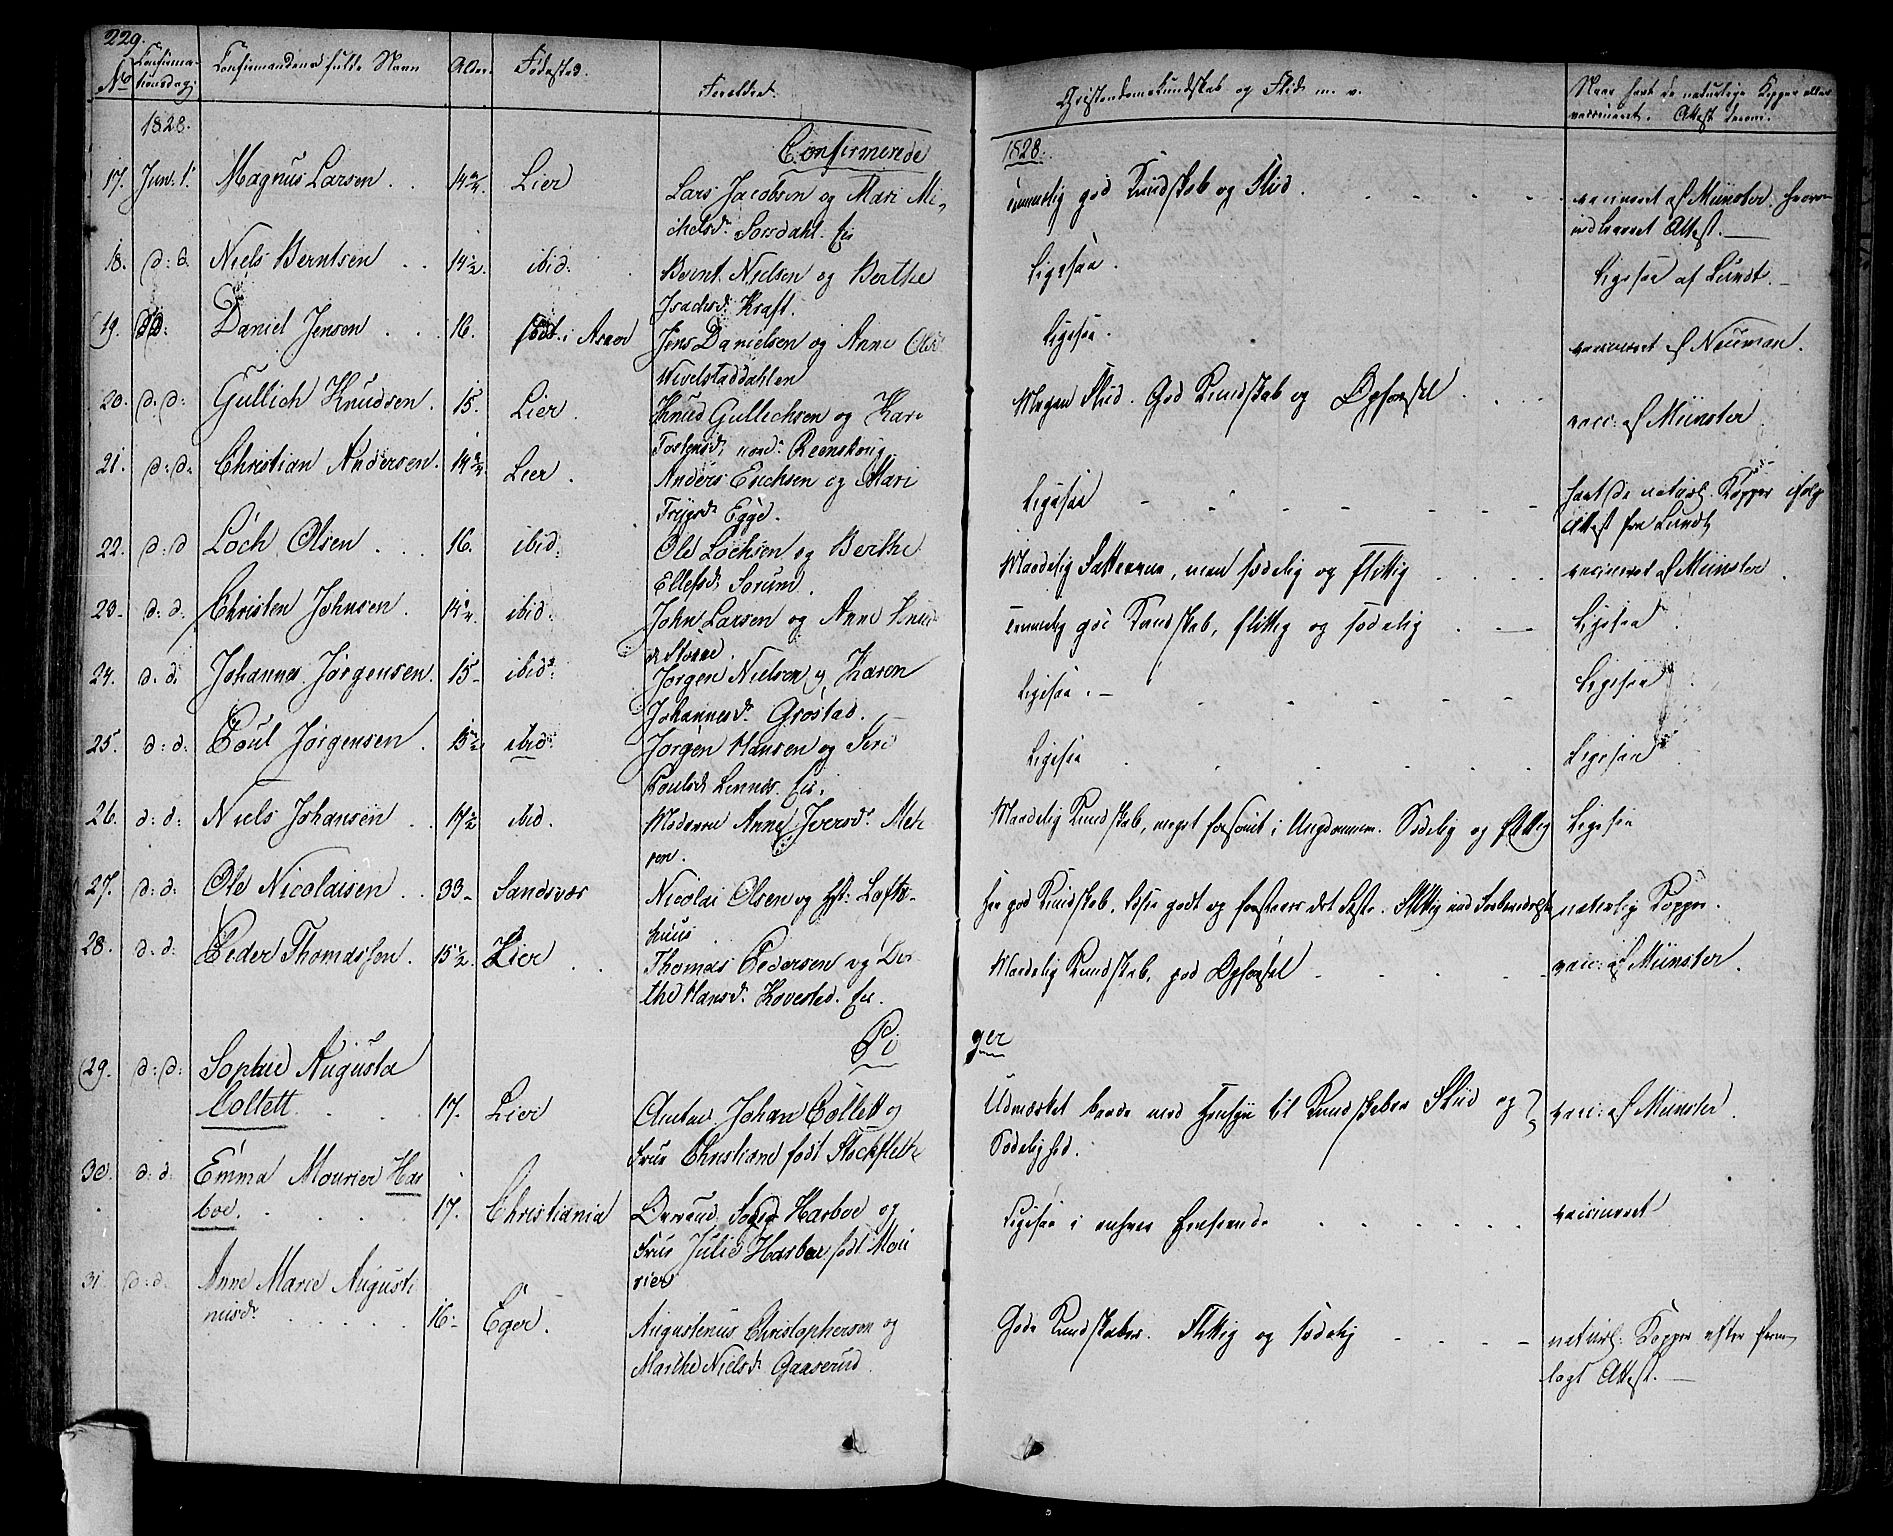 229.
No Confirma-
tionsdag Confirmandens fulde Navn Alder Fødested. Forældre. Christendoms Kundskab og Flid m. v. Naar havt de naturlige Kopper eller
vaccineret. Attest derom.
1828. Confirmerede 1828.
17. Jun. 1. Magnus Larsen . . 14 Lier Lars Jacobsen og Mari Mi- temmelig god Kundskab og Flid vaccineret af Münster, hvorom
chelsd. Sørsdahl. Eie indleveret Attest.
18. d: d. Niels Berntsen . . 14½. ibid: Bernt Nielsen og Berthe Ligesaa. Ligesaa af Lundt.
Isachsd. Kraft.
19. dd: Daniel Jensen . . . 16. født i Asker Jens Danielsen og Anne Olsd Ligesaa. vaccineret af Neuman.
Wivelstaddahlen
20. d. d: Gullich Knudsen. 15. Lier. Knud Gullichsen og Kari Megen Flid. God Kundskab og Opførsel vacc: af Münster
Torgensd. nord. Reenskoug
21. d: d: Christian Andersen. 14 Lier. Anders Erichsen og Mari Ligesaa havt de naturl. Kopper ifølge
Trygsd. Egge. Attest fra Lundt
22. d: d Loch Olsen . . . 16. ibid: Ole Lochsen og Berthe Maadelig Fatteevne, men sædelig og flittig vaccineret af Münster
Ellefsd. Sørum.
23. d: d. Christen Johnsen. 14½. ibid: John Larsen og Anne Knud- temmelig god Kundskab, flittig og sædelig Ligesaa
24. d. d. Johannes Jørgensen. 15 ibid: Jørgen Nielsen og Karen Ligesaa. Ligesaa
Johannesd. Grøstad.
25. d: d. Poul Jørgensen. 15½ ibid: Jørgen Hansen og Siri Ligesaa Ligesaa
Poulsd. Linnes. Eie.
26. d: d: Niels Johansen . . 17½ ibid. Moderen Anne Iversd. Meh- Maadelig Kundskab, meget forsømt i Ungdommen. Sædelig og flittig Ligesaa
ren.
27. d: d: Ole Nicolaisen . . 33 Sandsvær Nicolai Olsen og Loft- god Kundskab, læser godt og forstaaer det Læste. Flittig naturlig Kopper.
huus
28. d: d: Peder Thomassen. 15½ Lier . . Thomas Pedersen og Dor- Maadelig Kundskab, god Opførsel vacc: af Münster.
the Hansd. Hovestad. Eie.
Pi ger
29. d: d: Sophie Augusta
Collett . . . 17. Lier Amtm. Johan Collett og Udmærket baade med Hensyn til Kundskaber Flid og vacc: af Münster.
Frue Christiane født Stockfleth Sædelighed.
30. d: d. Emma Mourier Har
boe. . . . . 17. Christiania Harboe og Ligesaa i enhver Henseende vaccineret
Frue Julie Harboe født Mou
rier
31 d: d. Anne Marie Augusti
nusd. . . . . . 16. Eger. Augustinus Christophersen og Gode Kundskaber. Flittig og sædelig naturl: Kopper efter frem-
Marthe Nielsd. Gaaserud. lagt Attest.